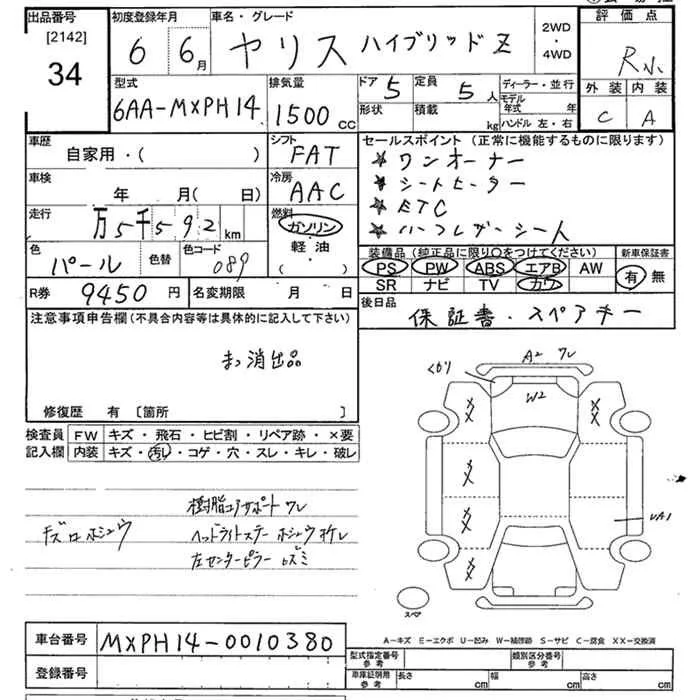 出品番号
[2142]
34
初度登録年月
6 6月
車名・グレード
ヤリス ハイブリッドZ
2WD
・
4WD
評価点
R小
外装 内装
C A
型式
6AA-MXPH14
排気量
1500 cc
ドア 5
定員 5 人
ディーラー・並行
形状
積載 kg
モデル年式 年
ハンドル 左・右
車歴
自家用・( )
シフト
FAT
セールスポイント (正常に機能するものに限ります)
★ ワンオーナー
★ シートヒーター
★ ETC
★ ハーフレザーシート
車検
年 月( 日)
冷房
AAC
走行
万5千592 km
燃料
ガソリン
軽・油
・( )
色
パール
色替
色コード
089
装備品 (純正品に限り○をつけてください)
新車保証書
PS PW ABS エアB AW
有 無
SR ナビ TV カワ
R券 9450 円
名変期限 月 日
後日品
保証書・スペアキー
注意事項申告欄(不具合内容等は具体的に記入して下さい)
まっ消出品
修復歴 有 [箇所 ]
検査員記入欄
FW キズ・飛石・ヒビ割・リペア跡・×要
内装 キズ・汚レ・コゲ・穴・スレ・キレ・破レ
樹脂コアサポート ワレ
ヘッドライトステー ホシュウ オレ
左センターピラー
A2 ワレ
W2
XX
XX
XX
XX
UA1
スペア
A-キズ E-エクボ U-凹み W-補修跡 S-サビ C-腐食 XX-交換済
車台番号 MXPH14-0010380
登録番号
型式指定番号
参考
類別区分番号
参考
車庫証明用
参考
長さ cm
幅 cm
高さ cm